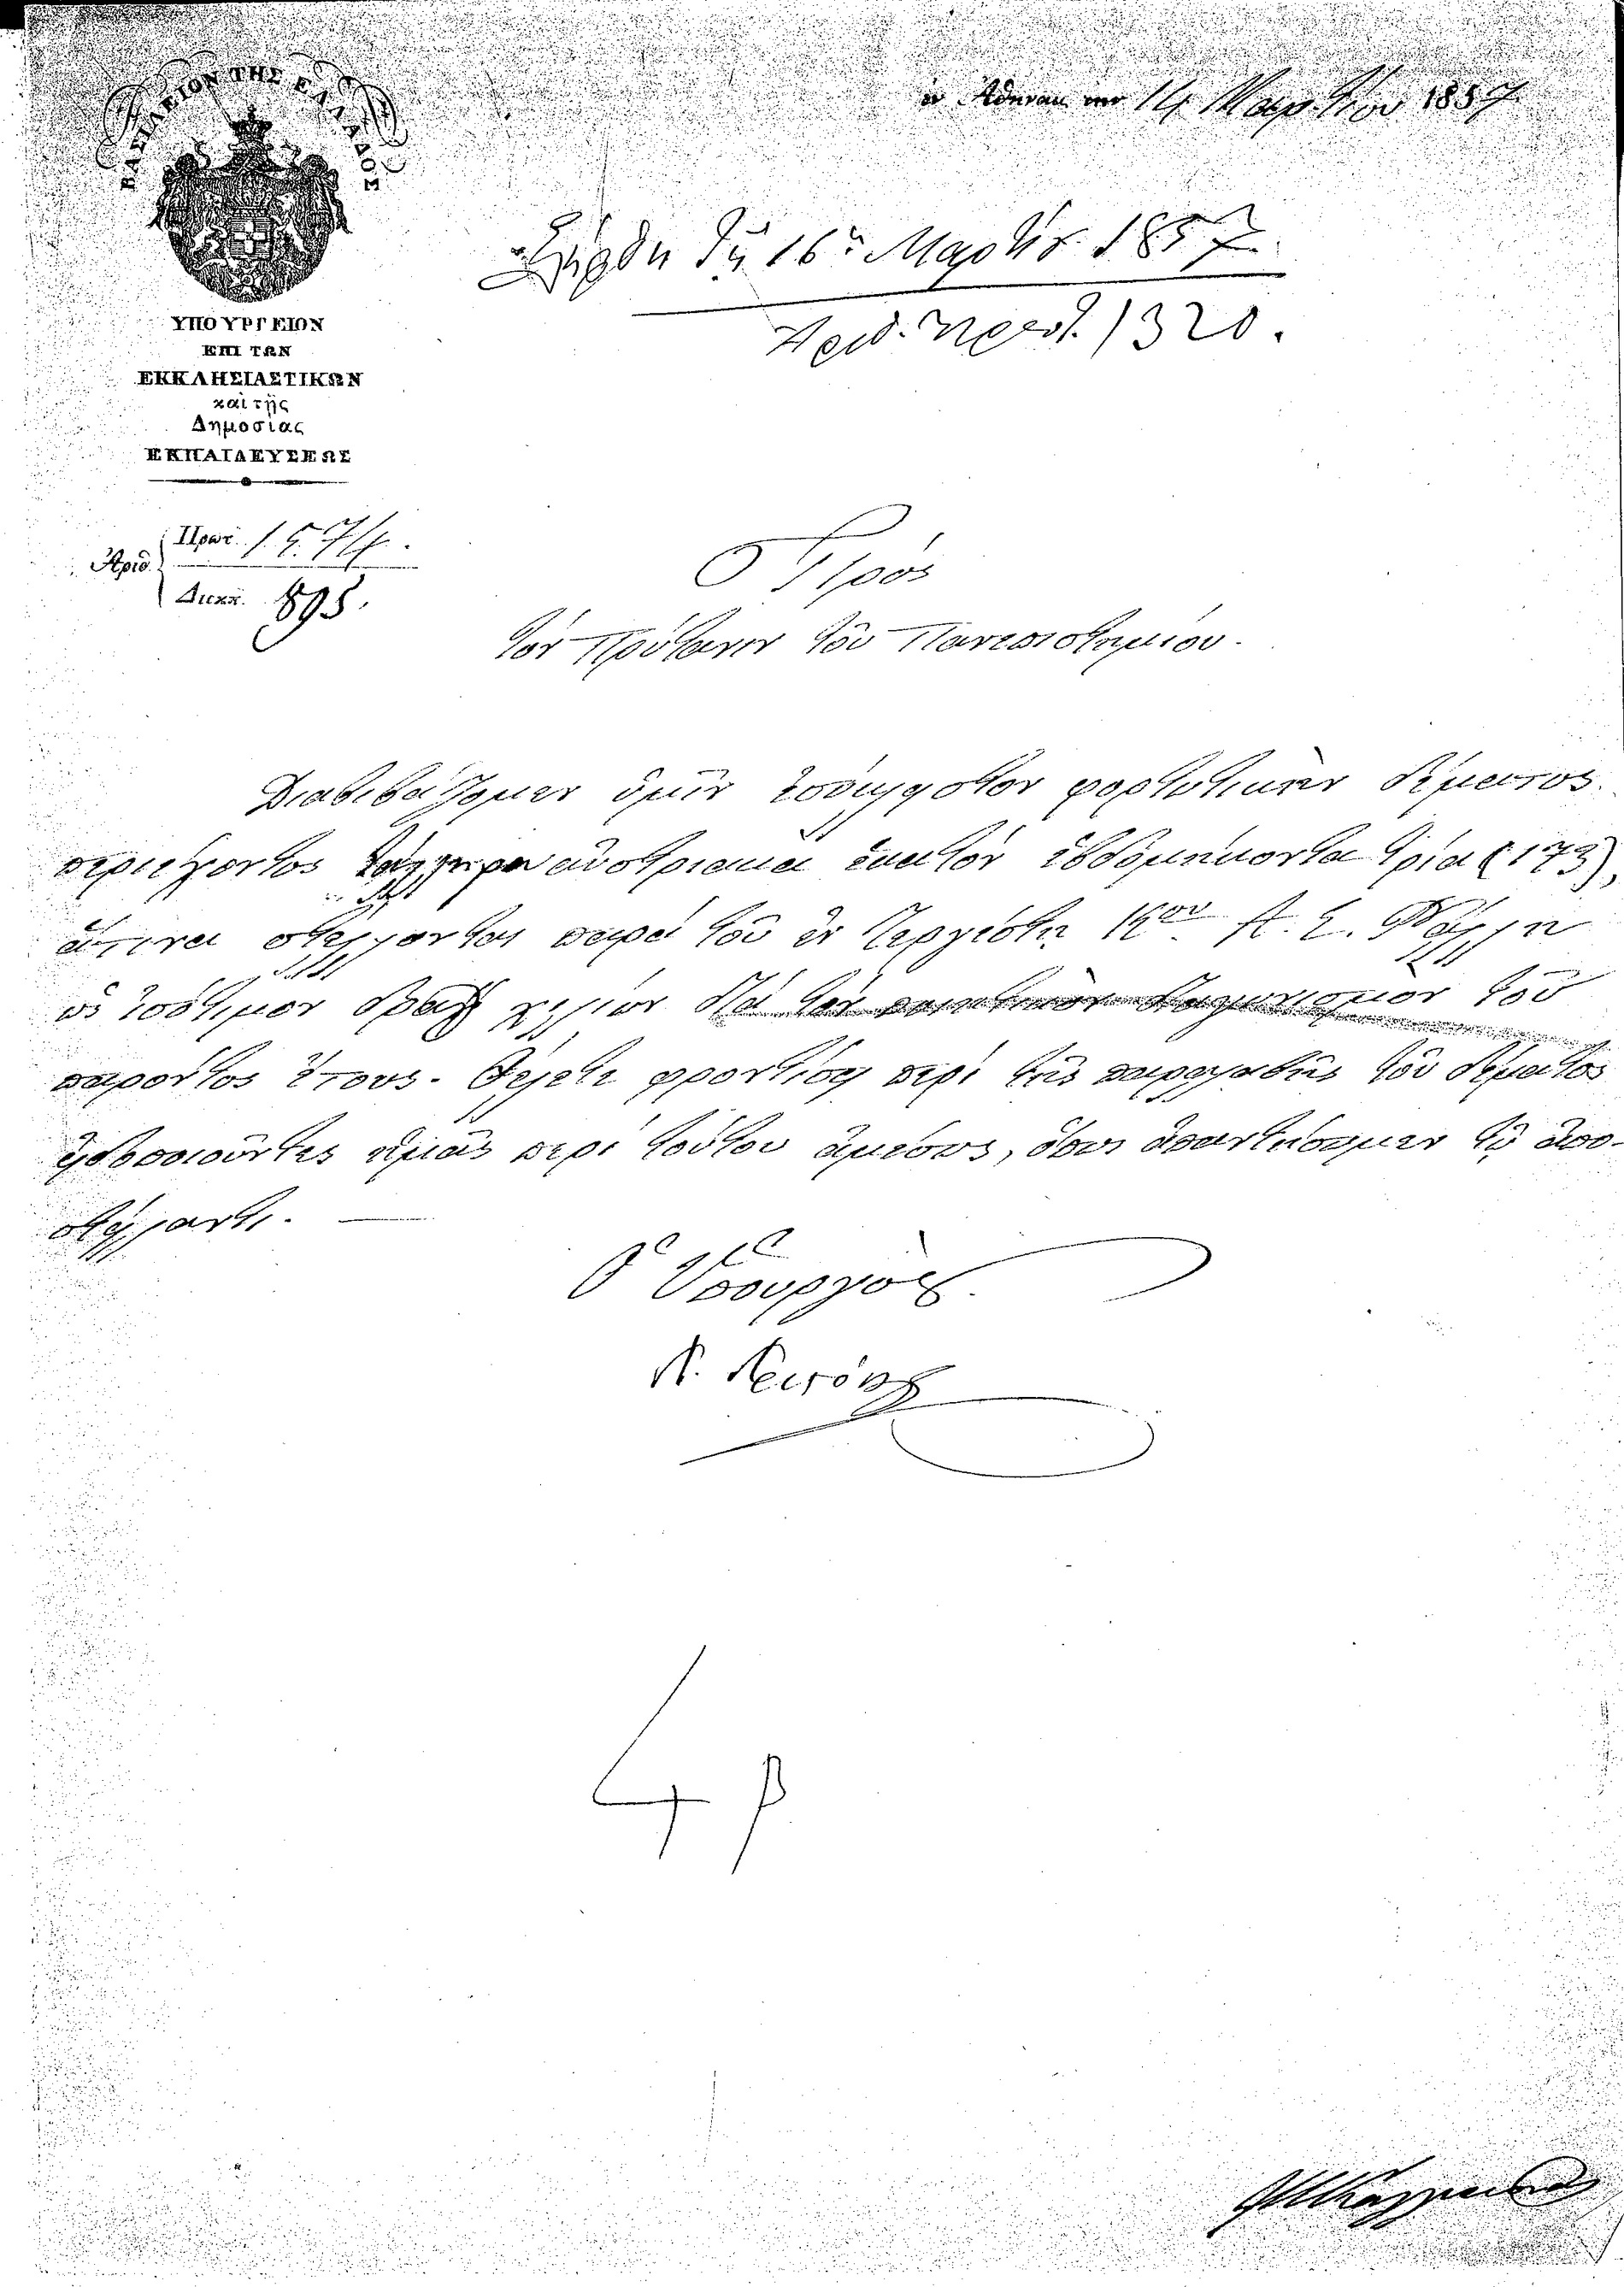 ἐν Ἀθήναις τὴν 14 Μαρτίου 1857.
ΒΑΣΙΛΕΙΟΝ ΤΗΣ ΕΛΛΑΔΟΣ
Ἐλήφθη τῇ 16ῃ Μαρτίου 1857.
Ἀριθ. Πρωτ. 1320.
ΥΠΟΥΡΓΕΙΟΝ
ΕΠΙ ΤΩΝ
ΕΚΚΛΗΣΙΑΣΤΙΚΩΝ
καὶ τῆς
Δημοσίας
ΕΚΠΑΙΔΕΥΣΕΩΣ
Πρωτ. 1574.
Ἀριθ.
Διεκπ. 895.
Πρὸς
τὸν Πρύτανιν τοῦ Πανεπιστημίου.
Διαβιβάζομεν ὑμῖν φορτωτικὴν δέματος
περιέχοντος τάλληρα αὐστριακὰ ἑκατὸν ἑβδομήκοντα τρία (173),
ἅτινα στέλλονται παρὰ τοῦ ἐν Τεργέστῃ Κου Α. Σ. Ῥάλλη
ὡς ἰσότιμον δραχ χιλίων διὰ τὸν ποιητικὸν διαγωνισμὸν τοῦ
παρόντος ἔτους. Θέλετε φροντίσει περὶ τῆς παραλαβῆς τοῦ δέματος
εἰδοποιοῦντες ἡμᾶς περὶ τούτου ἀμέσως, ὅπως ἀπαντήσωμεν τῷ ἀπο-
στείλαντι.
Ὁ Ὑπουργὸς
4 β